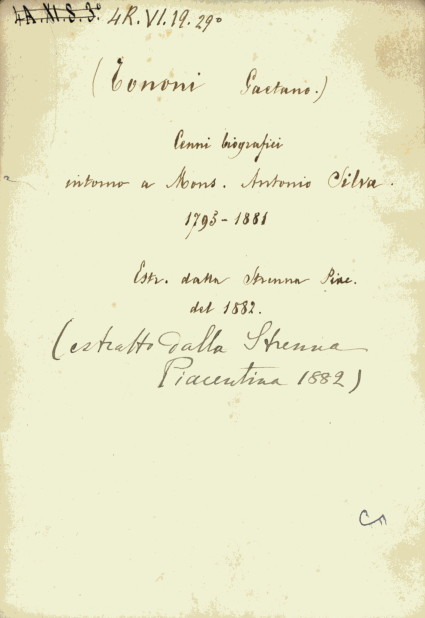 4A.XI.S.3° 4R.VI.19.29°
(Tononi Gaetano.)
Cenni biografici
intorno a Mons. Antonio Silva.
1793-1881
Estr. dalla Strenna Piac.
del 1882.
(estratto dalla Strenna
Piacentina 1882)